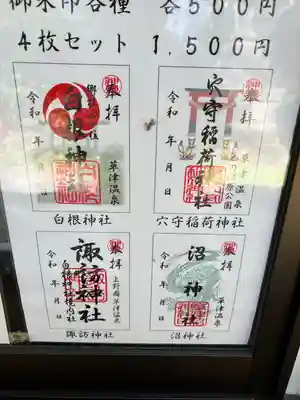 御朱印各種 各500円
4枚セット 1,500円
奉拝
白根神社
草津温泉
令和 年 月 日
白根神社
奉拝
穴守稲荷神社
草津温泉
令和 年 月 日
穴守稲荷神社
奉拝
諏訪神社
上野國草津温泉
白根神社境内社
令和 年 月 日
諏訪神社
奉拝
沼神社
草津温泉
令和 年 月 日
沼神社